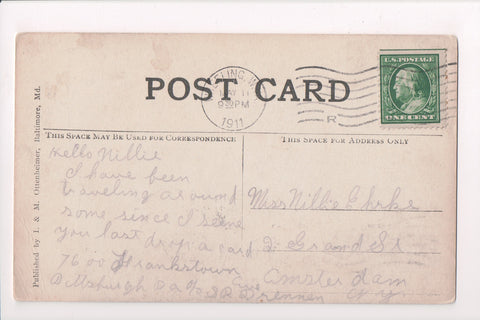 POST CARD
WHEELING, W.
MAY 11
9 30 PM
1911
R
U.S. POSTAGE
ONE CENT
THIS SPACE MAY BE USED FOR CORRESPONDENCE
THIS SPACE FOR ADDRESS ONLY
Published by I. & M. Ottenheimer, Baltimore, Md.
Hello Nillie
I have been
traveling around
some since I seene
you last drop a card
7600 Frankstown Ave
Pittsburgh Pa c/o S R Drennen
Miss Nillie Ehrke
Grand St
Amsterdam
N Y